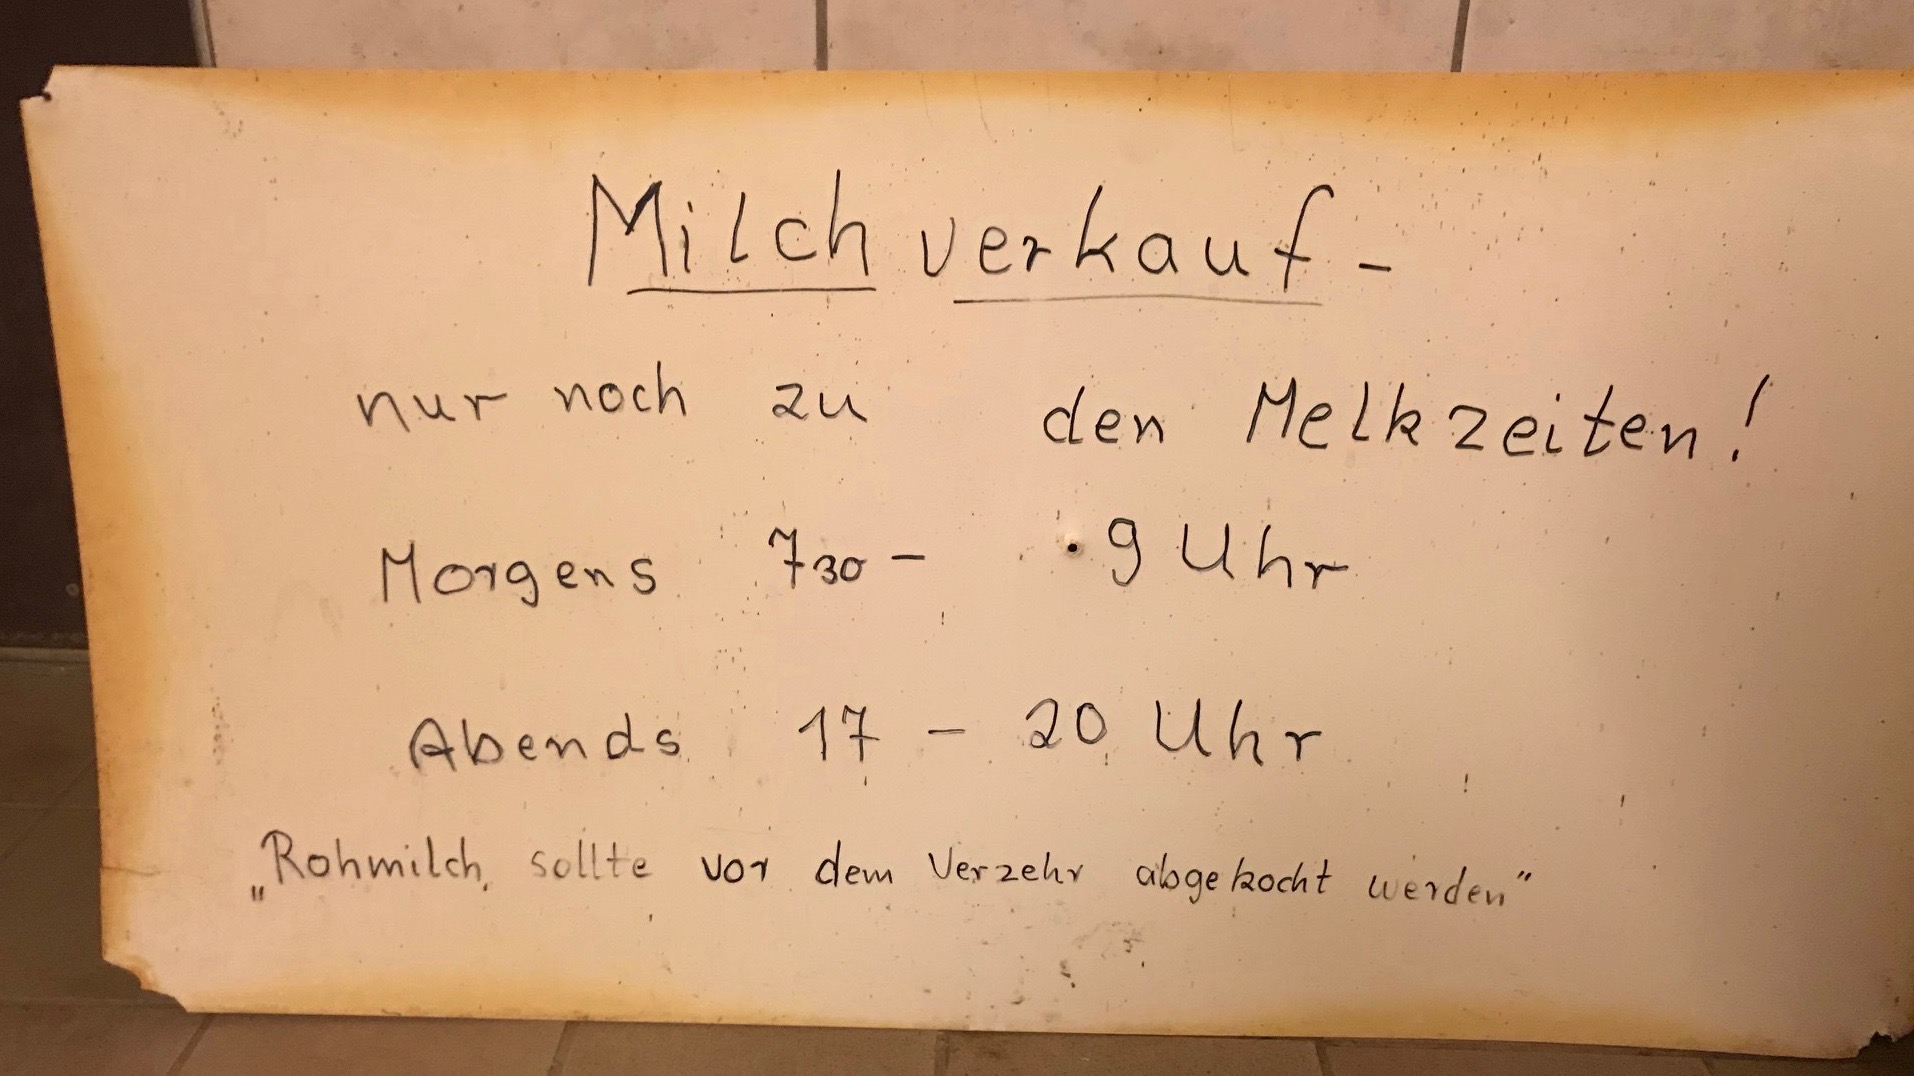 Milchverkauf -
nur noch zu den Melkzeiten!
Morgens 730 - 9 Uhr
Abends 17 - 20 Uhr
„Rohmilch, sollte vor dem Verzehr abgekocht werden"